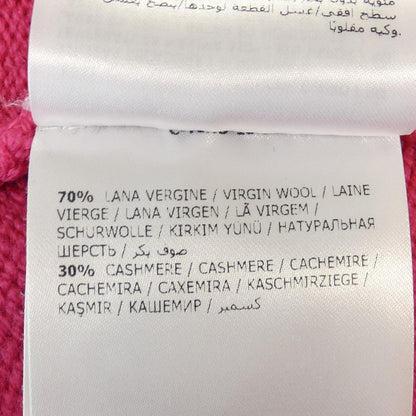 سطح أفقي/غسل القطعة لوحدها/ينصح بغسل
وكيه مقلوبًا.
70% LANA VERGINE / VIRGIN WOOL / LAINE
VIERGE / LANA VIRGEN / LÃ VIRGEM /
SCHURWOLLE / KIRKIM YÜNÜ / НАТУРАЛЬНАЯ
ШЕРСТЬ / صوف بكر /
30% CASHMERE / CASHMERE / CACHEMIRE /
CACHEMIRA / CAXEMIRA / KASCHMIRZIEGE /
KAŞMIR / КАШЕМИР / كسمير /